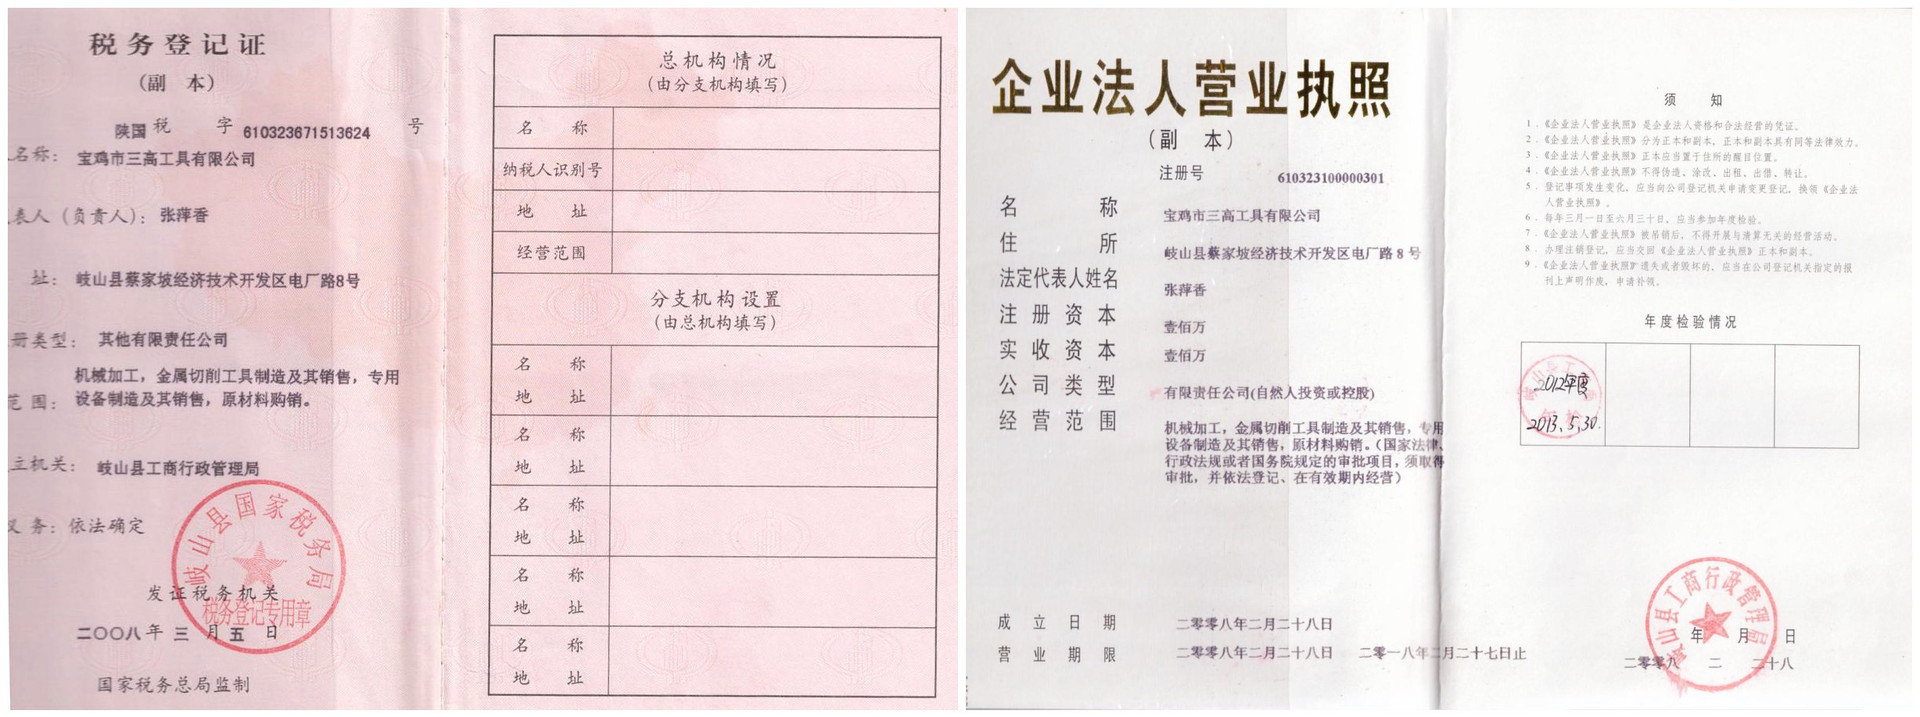 税务登记证
（副 本）
陕国 税 字 610323671513624 号
名称： 宝鸡市三高工具有限公司
表人（负责人）： 张萍香
址： 岐山县蔡家坡经济技术开发区电厂路8号
册类型： 其他有限责任公司
机械加工，金属切削工具制造及其销售，专用
范 围： 设备制造及其销售，原材料购销。
立机关： 岐山县工商行政管理局
义 务： 依法确定
岐山县国家税务局
税务登记专用章
发证税务机关
二〇〇八 年 三 月 五 日
国家税务总局监制
总机构情况
（由分支机构填写）
名 称
纳税人识别号
地 址
经营范围
分支机构设置
（由总机构填写）
名 称
地 址
名 称
地 址
名 称
地 址
名 称
地 址
名 称
地 址
企业法人营业执照
（副 本）
注册号 610323100000301
名 称 宝鸡市三高工具有限公司
住 所 岐山县蔡家坡经济技术开发区电厂路 8 号
法定代表人姓名 张萍香
注 册 资 本 壹佰万
实 收 资 本 壹佰万
公 司 类 型 有限责任公司(自然人投资或控股)
经 营 范 围 机械加工，金属切削工具制造及其销售，专用
设备制造及其销售，原材料购销。（国家法律、
行政法规或者国务院规定的审批项目，须取得
审批，并依法登记、在有效期内经营）
成 立 日 期 二零零八年二月二十八日
营 业 期 限 二零零八年二月二十八日 二零一八年二月二十七日止
须 知
1．《企业法人营业执照》是企业法人资格和合法经营的凭证。
2．《企业法人营业执照》分为正本和副本，正本和副本具有同等法律效力。
3．《企业法人营业执照》正本应当置于住所的醒目位置。
4．《企业法人营业执照》不得伪造、涂改、出租、出借、转让。
5．登记事项发生变化，应当向公司登记机关申请变更登记，换领《企业法
人营业执照》。
6．每年三月一日至六月三十日，应当参加年度检验。
7．《企业法人营业执照》被吊销后，不得开展与清算无关的经营活动。
8．办理注销登记，应当交回《企业法人营业执照》正本和副本。
9．《企业法人营业执照》遗失或者毁坏的，应当在公司登记机关指定的报
刊上声明作废，申请补领。
年度检验情况
2012年度
2013.5.30.
岐山县工商行政管理局
年 月 日
二零零八 二 二十八